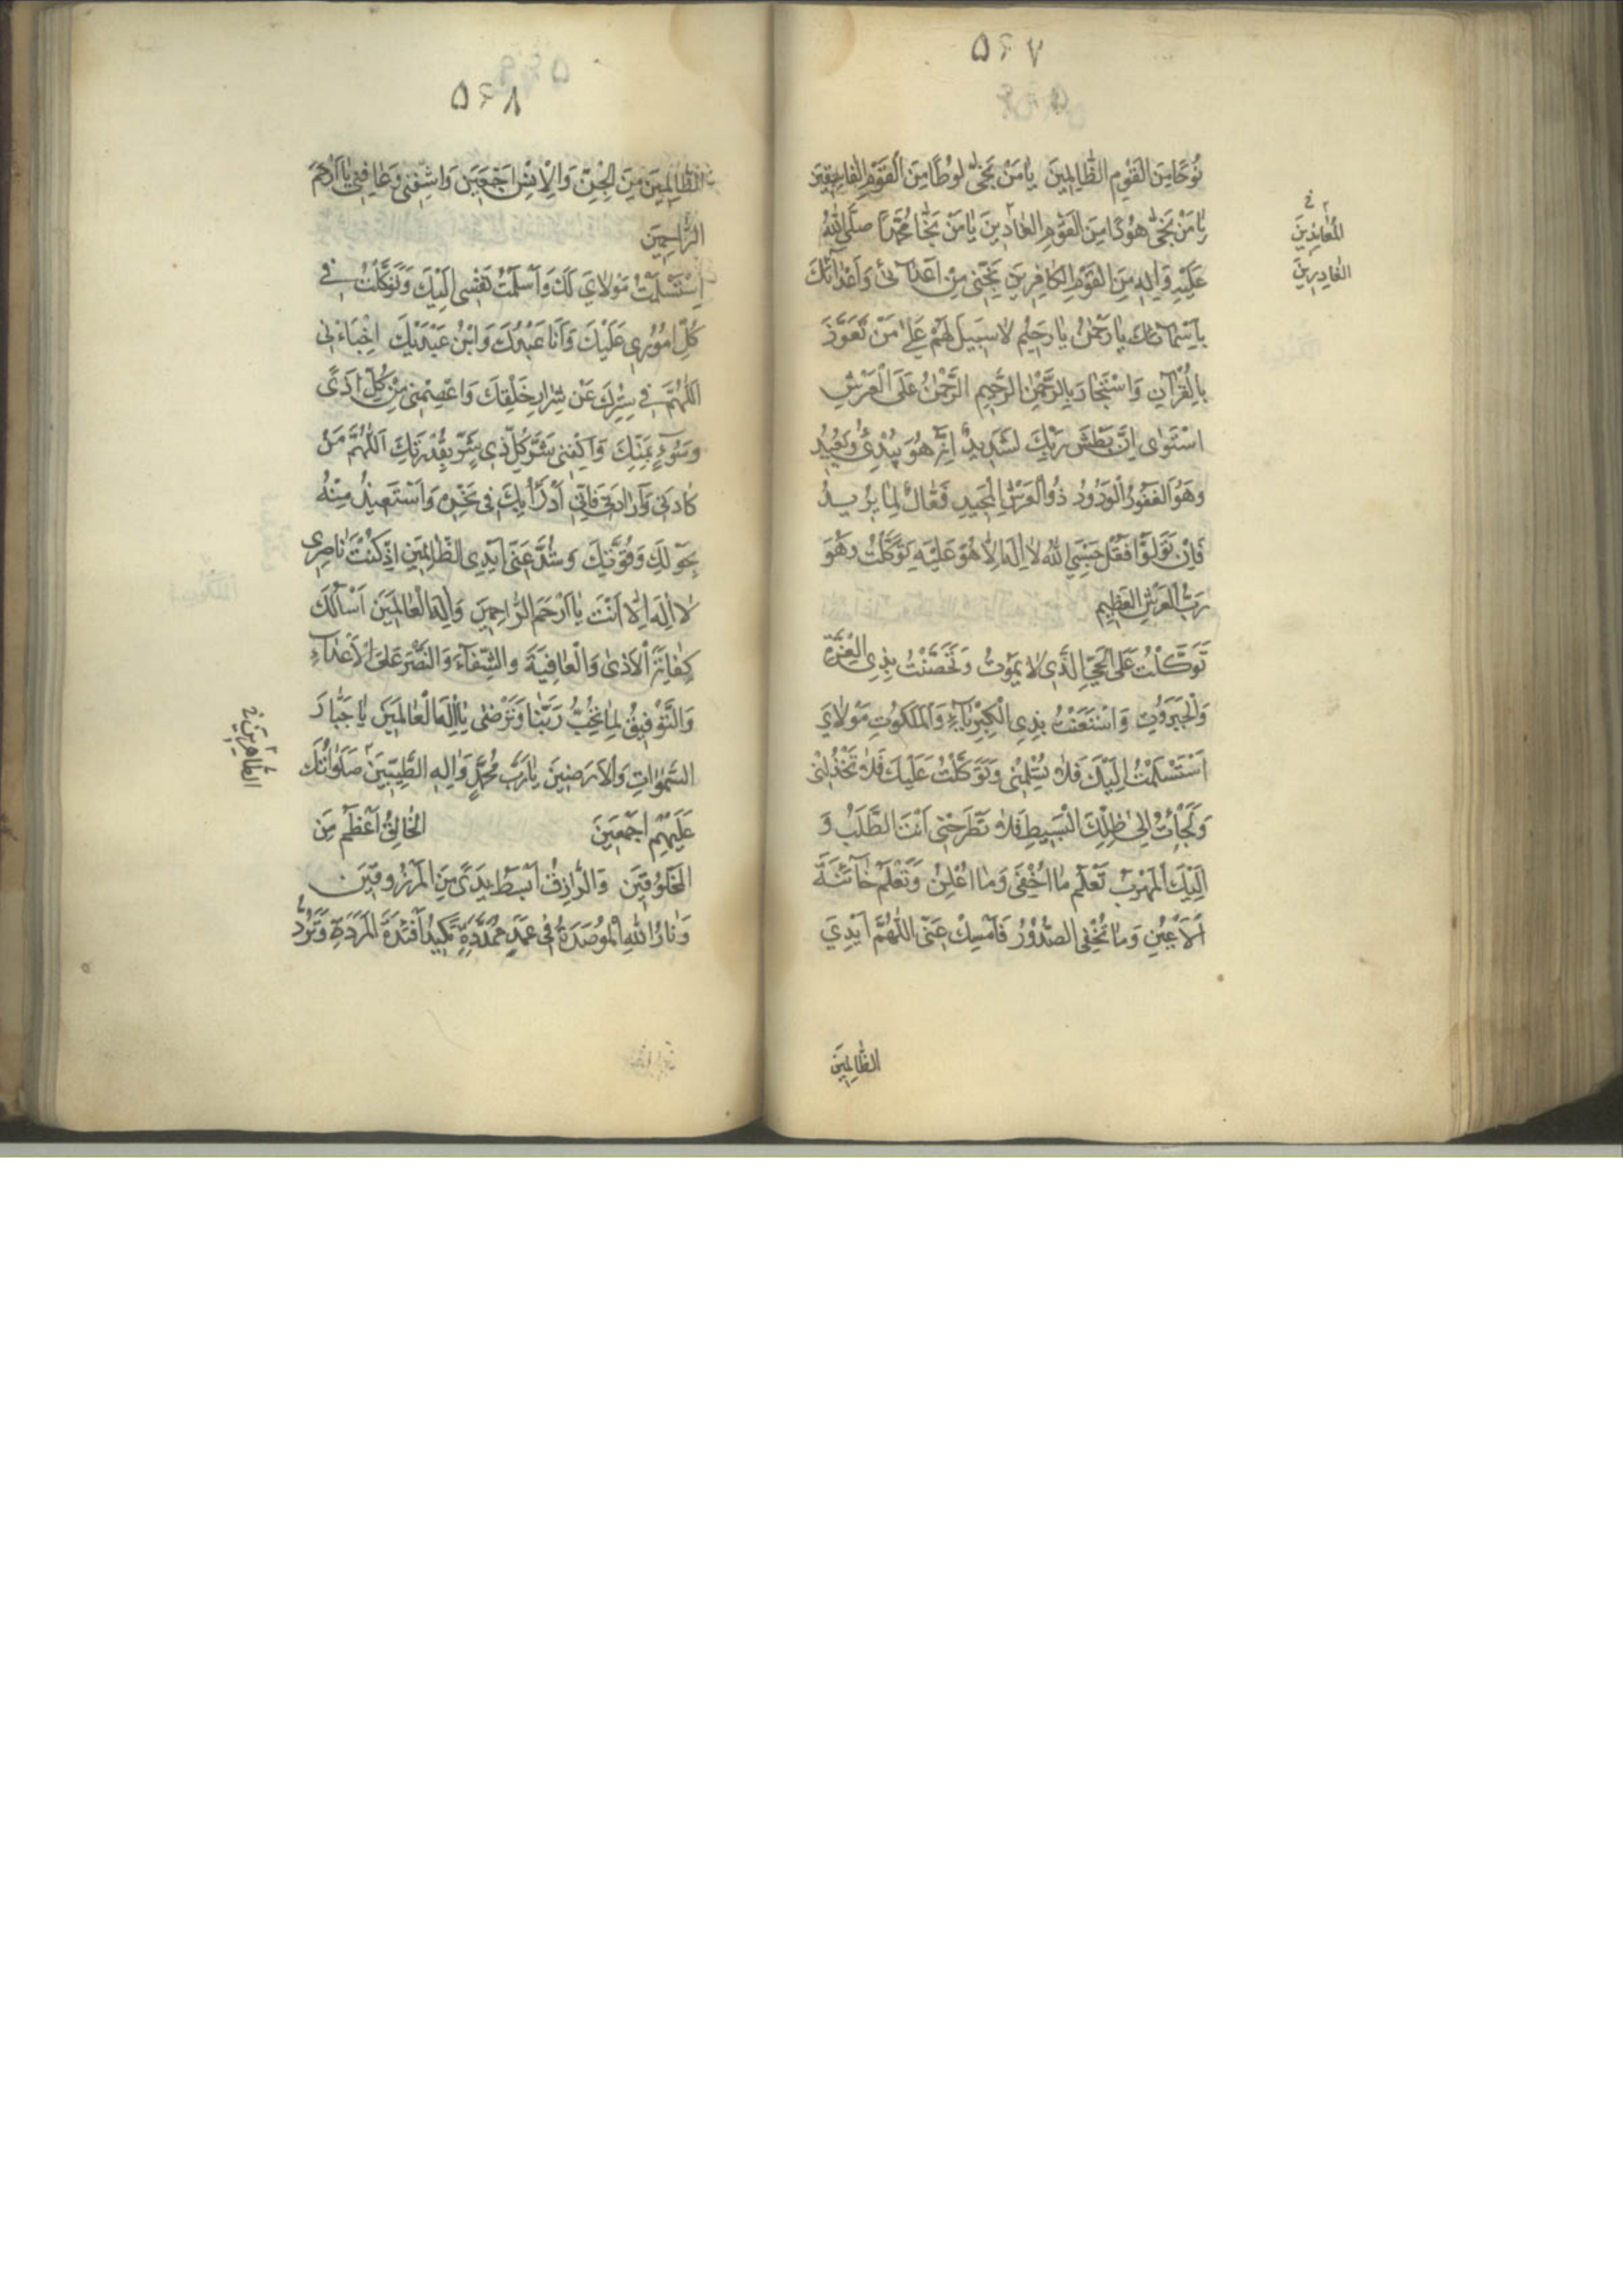 ۵۶۷
نُوحًا مِنَ الْقَوْمِ الظَّالِمِينَ يَا مَنْ نَجَّىٰ لُوطًا مِنَ الْقَوْمِ الْفَاسِقِينَ
يَا مَنْ نَجَّىٰ هُودًا مِنَ الْقَوْمِ الْعَادِينَ يَا مَنْ نَجَّا مُحَمَّدًا صَلَّى اللهُ
عَلَيْهِ وَآلِهِ مِنَ الْقَوْمِ الْكَافِرِينَ نَجِّنِي مِنْ أَعْدَائِي وَأَعْدَائِكَ
بِأَسْمَائِكَ يَا رَحْمٰنُ يَا رَحِيمُ لَا سَبِيلَ لَهُمْ عَلَىٰ مَنْ تَعَوَّذَ
بِالْقُرْآنِ وَاسْتَجَارَ بِالرَّحْمٰنِ الرَّحِيمِ الرَّحْمٰنُ عَلَى الْعَرْشِ
اسْتَوَىٰ إِنَّ بَطْشَ رَبِّكَ لَشَدِيدٌ إِنَّهُ هُوَ يُبْدِئُ وَيُعِيدُ
وَهُوَ الْغَفُورُ الْوَدُودُ ذُو الْعَرْشِ الْمَجِيدِ فَعَّالٌ لِمَا يُرِيدُ
فَإِنْ تَوَلَّوْا فَقُلْ حَسْبِيَ اللهُ لَا إِلٰهَ إِلَّا هُوَ عَلَيْهِ تَوَكَّلْتُ وَهُوَ
رَبُّ الْعَرْشِ الْعَظِيمِ
تَوَكَّلْتُ عَلَى الْحَيِّ الَّذِي لَا يَمُوتُ وَتَحَصَّنْتُ بِذِي الْعِزَّةِ
وَالْجَبَرُوتِ وَاسْتَعَنْتُ بِذِي الْكِبْرِيَاءِ وَالْمَلَكُوتِ مَوْلَايَ
اسْتَسْلَمْتُ إِلَيْكَ فَلَا تُسْلِمْنِي وَتَوَكَّلْتُ عَلَيْكَ فَلَا تَخْذُلْنِي
وَلَجَأْتُ إِلَىٰ ظِلِّكَ الْبَسِيطِ فَلَا تَطْرَحْنِي أَنْتَ الطَّلَبُ وَ
إِلَيْكَ الْمَهْرَبُ تَعْلَمُ مَا أُخْفِي وَمَا أُعْلِنُ وَتَعْلَمُ خَائِنَةَ
الْأَعْيُنِ وَمَا تُخْفِي الصُّدُورُ فَأَمْسِكْ عَنِّي اللّٰهُمَّ أَيْدِيَ
الظَّالِمِينَ
الْمُعَانِدِينَ
الْغَادِرِينَ
۵۶۸
الظَّالِمِينَ مِنَ الْجِنِّ وَالْإِنْسِ أَجْمَعِينَ وَاشْفِنِي وَعَافِنِي يَا أَرْحَمَ
الرَّاحِمِينَ
اِسْتَسْلَمْتُ مَوْلَايَ لَكَ وَأَسْلَمْتُ نَفْسِي إِلَيْكَ وَتَوَكَّلْتُ فِي
كُلِّ أُمُورِي عَلَيْكَ وَأَنَا عَبْدُكَ وَابْنُ عَبْدَيْكَ اخْبَأْنِي
اللّٰهُمَّ فِي سِتْرِكَ عَنْ شِرَارِ خَلْقِكَ وَاعْصِمْنِي مِنْ كُلِّ أَذًى
وَسُوءٍ بِمَنِّكَ وَاكْفِنِي شَرَّ كُلِّ ذِي شَرٍّ بِقُدْرَتِكَ اللّٰهُمَّ مَنْ
كَادَنِي وَأَرَادَنِي فَإِنِّي أَدْرَأُ بِكَ فِي نَحْرِهِ وَأَسْتَعِيذُ مِنْهُ
بِحَوْلِكَ وَقُوَّتِكَ وَشُدَّ عَنِّي أَيْدِيَ الظَّالِمِينَ إِذْ كُنْتَ نَاصِرِي
لَا إِلٰهَ إِلَّا أَنْتَ يَا أَرْحَمَ الرَّاحِمِينَ وَإِلٰهَ الْعَالَمِينَ أَسْأَلُكَ
كِفَايَةَ الْأَذَىٰ وَالْعَافِيَةَ وَالشِّفَاءَ وَالنَّصْرَ عَلَى الْأَعْدَاءِ
وَالتَّوْفِيقَ لِمَا تُحِبُّ رَبَّنَا وَتَرْضَىٰ يَا إِلٰهَ الْعَالَمِينَ يَا جَبَّارَ
السَّمٰوَاتِ وَالْأَرَضِينَ يَا رَبَّ مُحَمَّدٍ وَآلِهِ الطَّيِّبِينَ صَلَوَاتُكَ
عَلَيْهِمْ أَجْمَعِينَ الْخَالِقُ أَعْظَمُ مِنَ
الْمَخْلُوقِينَ وَالرَّازِقُ أَبْسَطُ يَدًى مِنَ الْمَرْزُوقِينَ
وَنَارُ اللهِ الْمُوصَدَةُ فِي عَمَدٍ مُمَدَّدَةٍ تَكِيدُ أَفْئِدَةَ الْمَرَدَةِ وَتَرُدُّ
الطَّاهِرِينَ